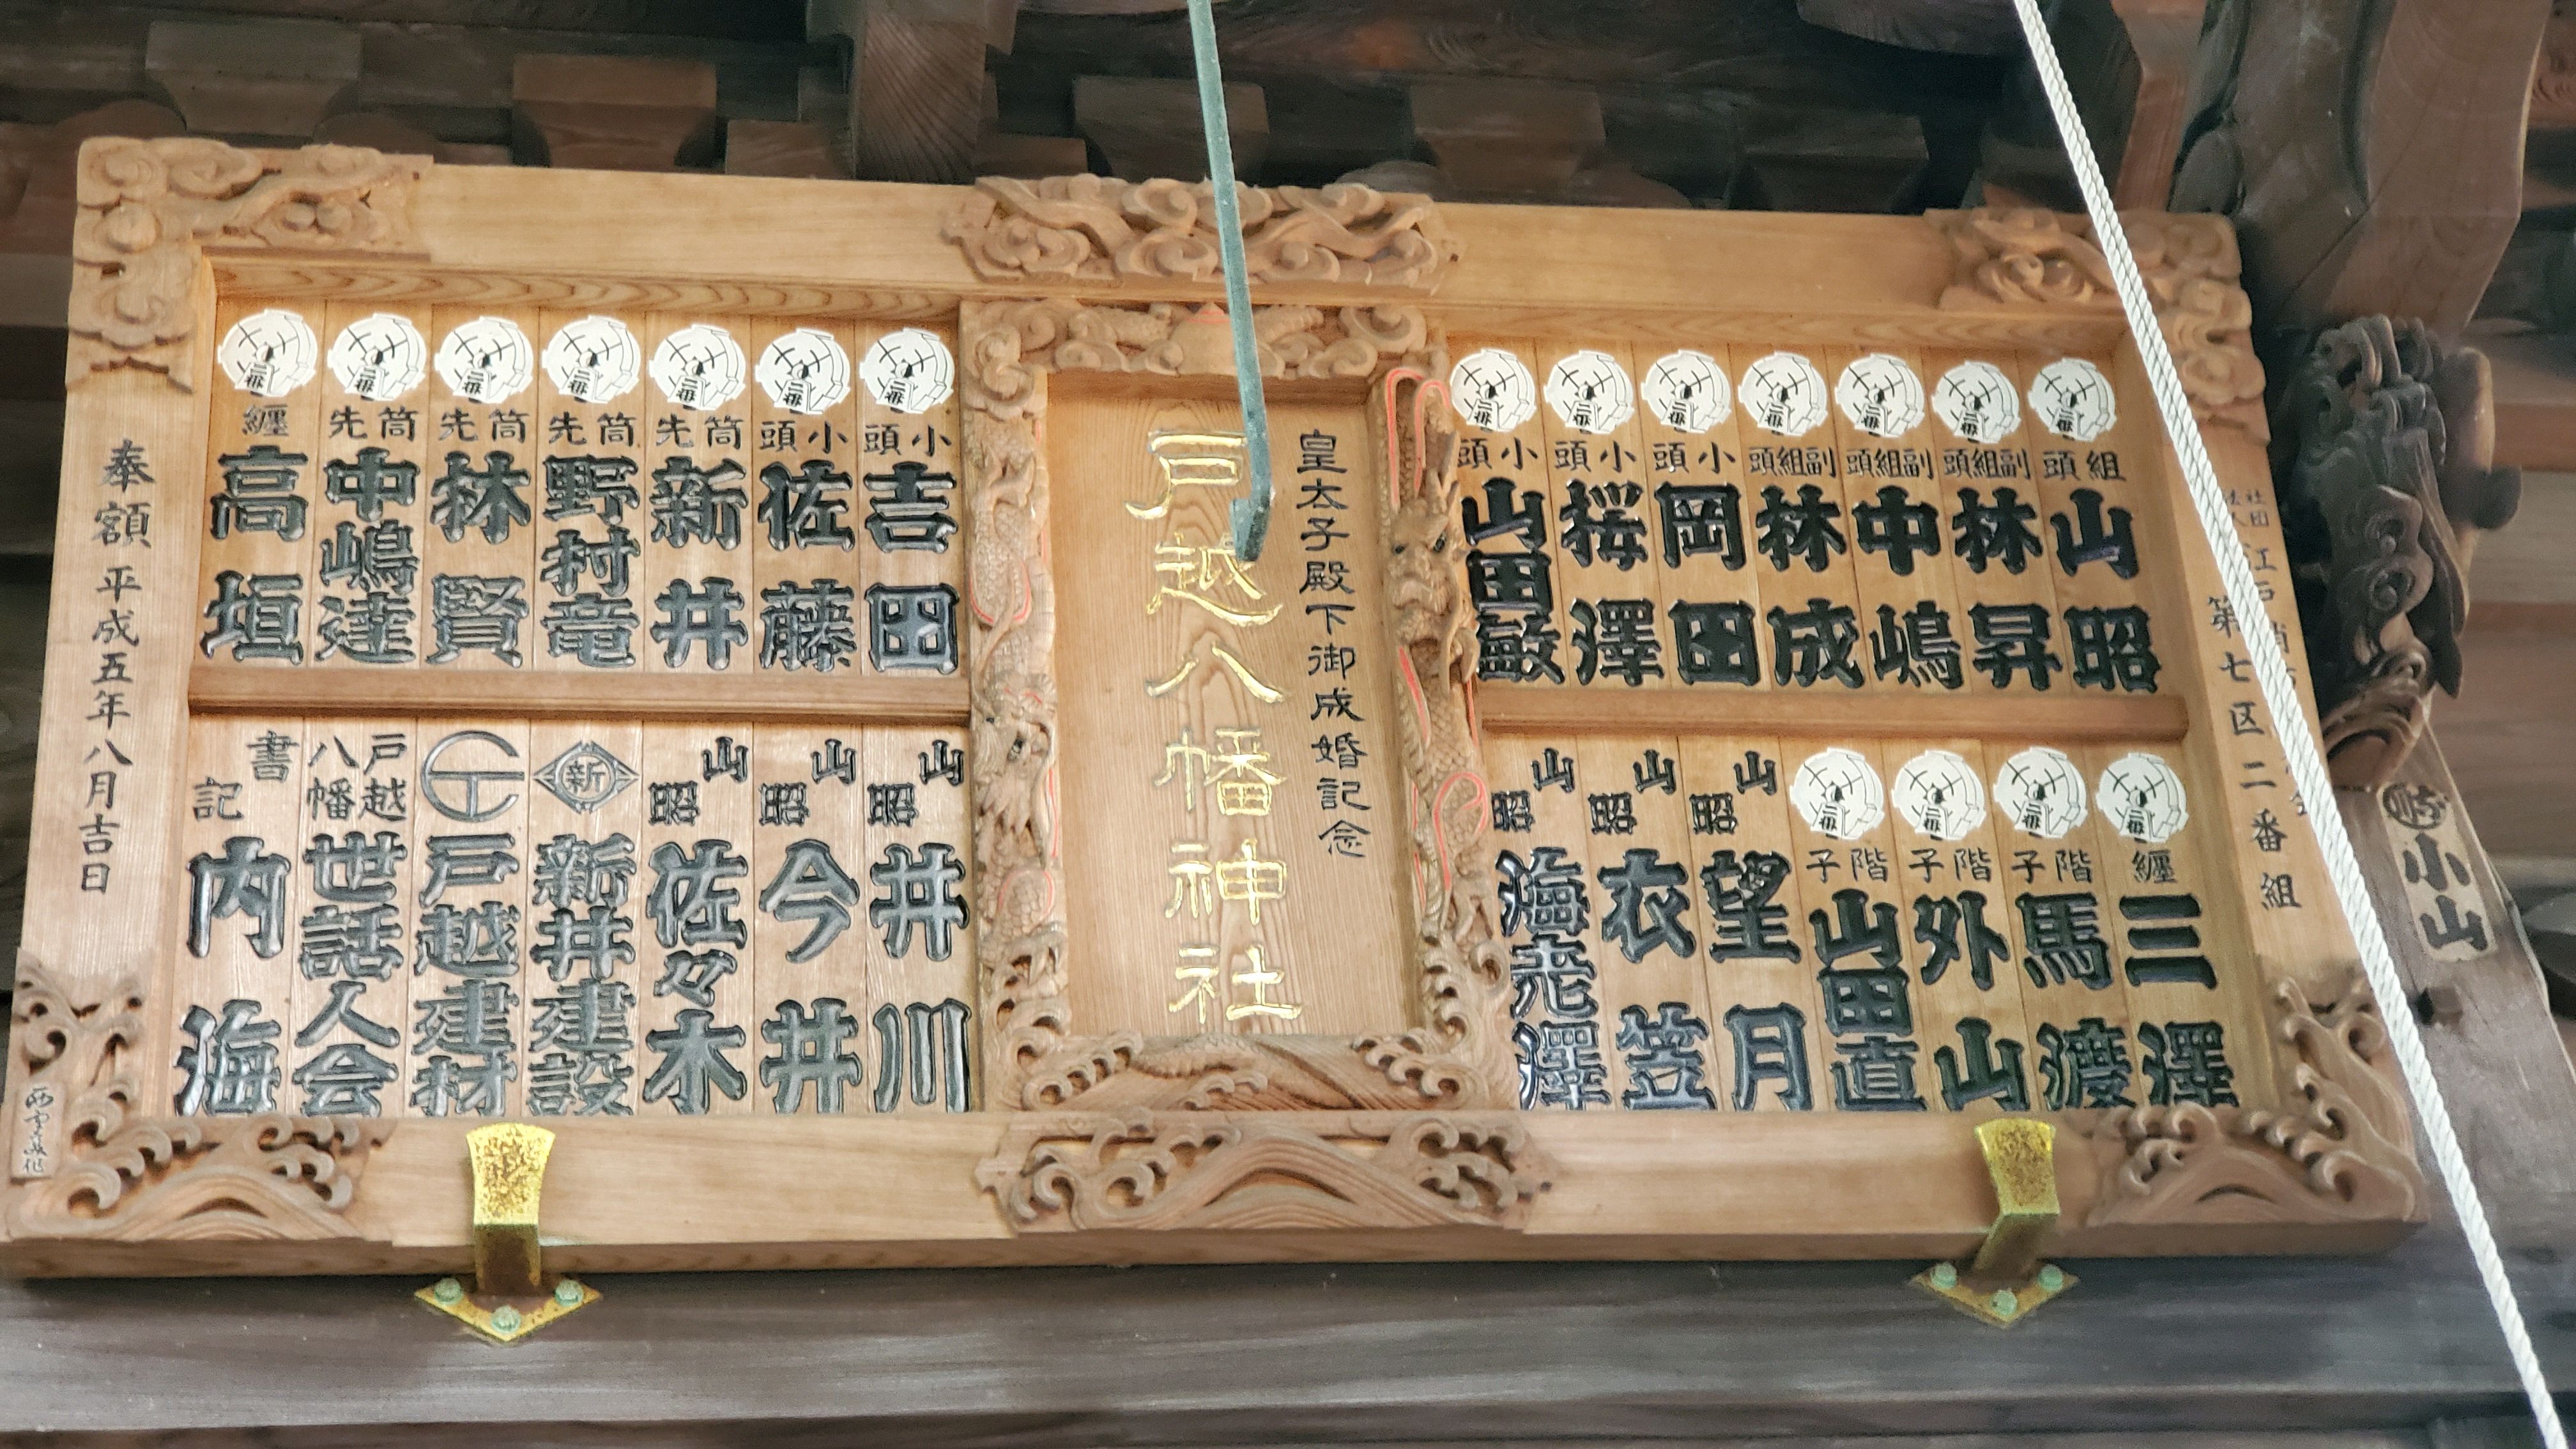 社団
法人
第七区二番組
組頭
山昭
副組頭
林昇
副組頭
中嶋
副組頭
林成
小頭
岡田
小頭
桜澤
小頭
山田敏
纏
三澤
階子
馬渡
階子
外山
階子
山田直
山昭
望月
山昭
衣笠
山昭
海老澤
皇太子殿下御成婚記念
戸越八幡神社
小頭
吉田
小頭
佐藤
筒先
新井
筒先
野村竜
筒先
林賢
筒先
中嶋達
纏
高垣
山昭
井川
山昭
今井
山昭
佐々木
新
新井建設
戸越建材
戸越
八幡
世話人会
書記
内海
奉額 平成五年八月吉日
小山